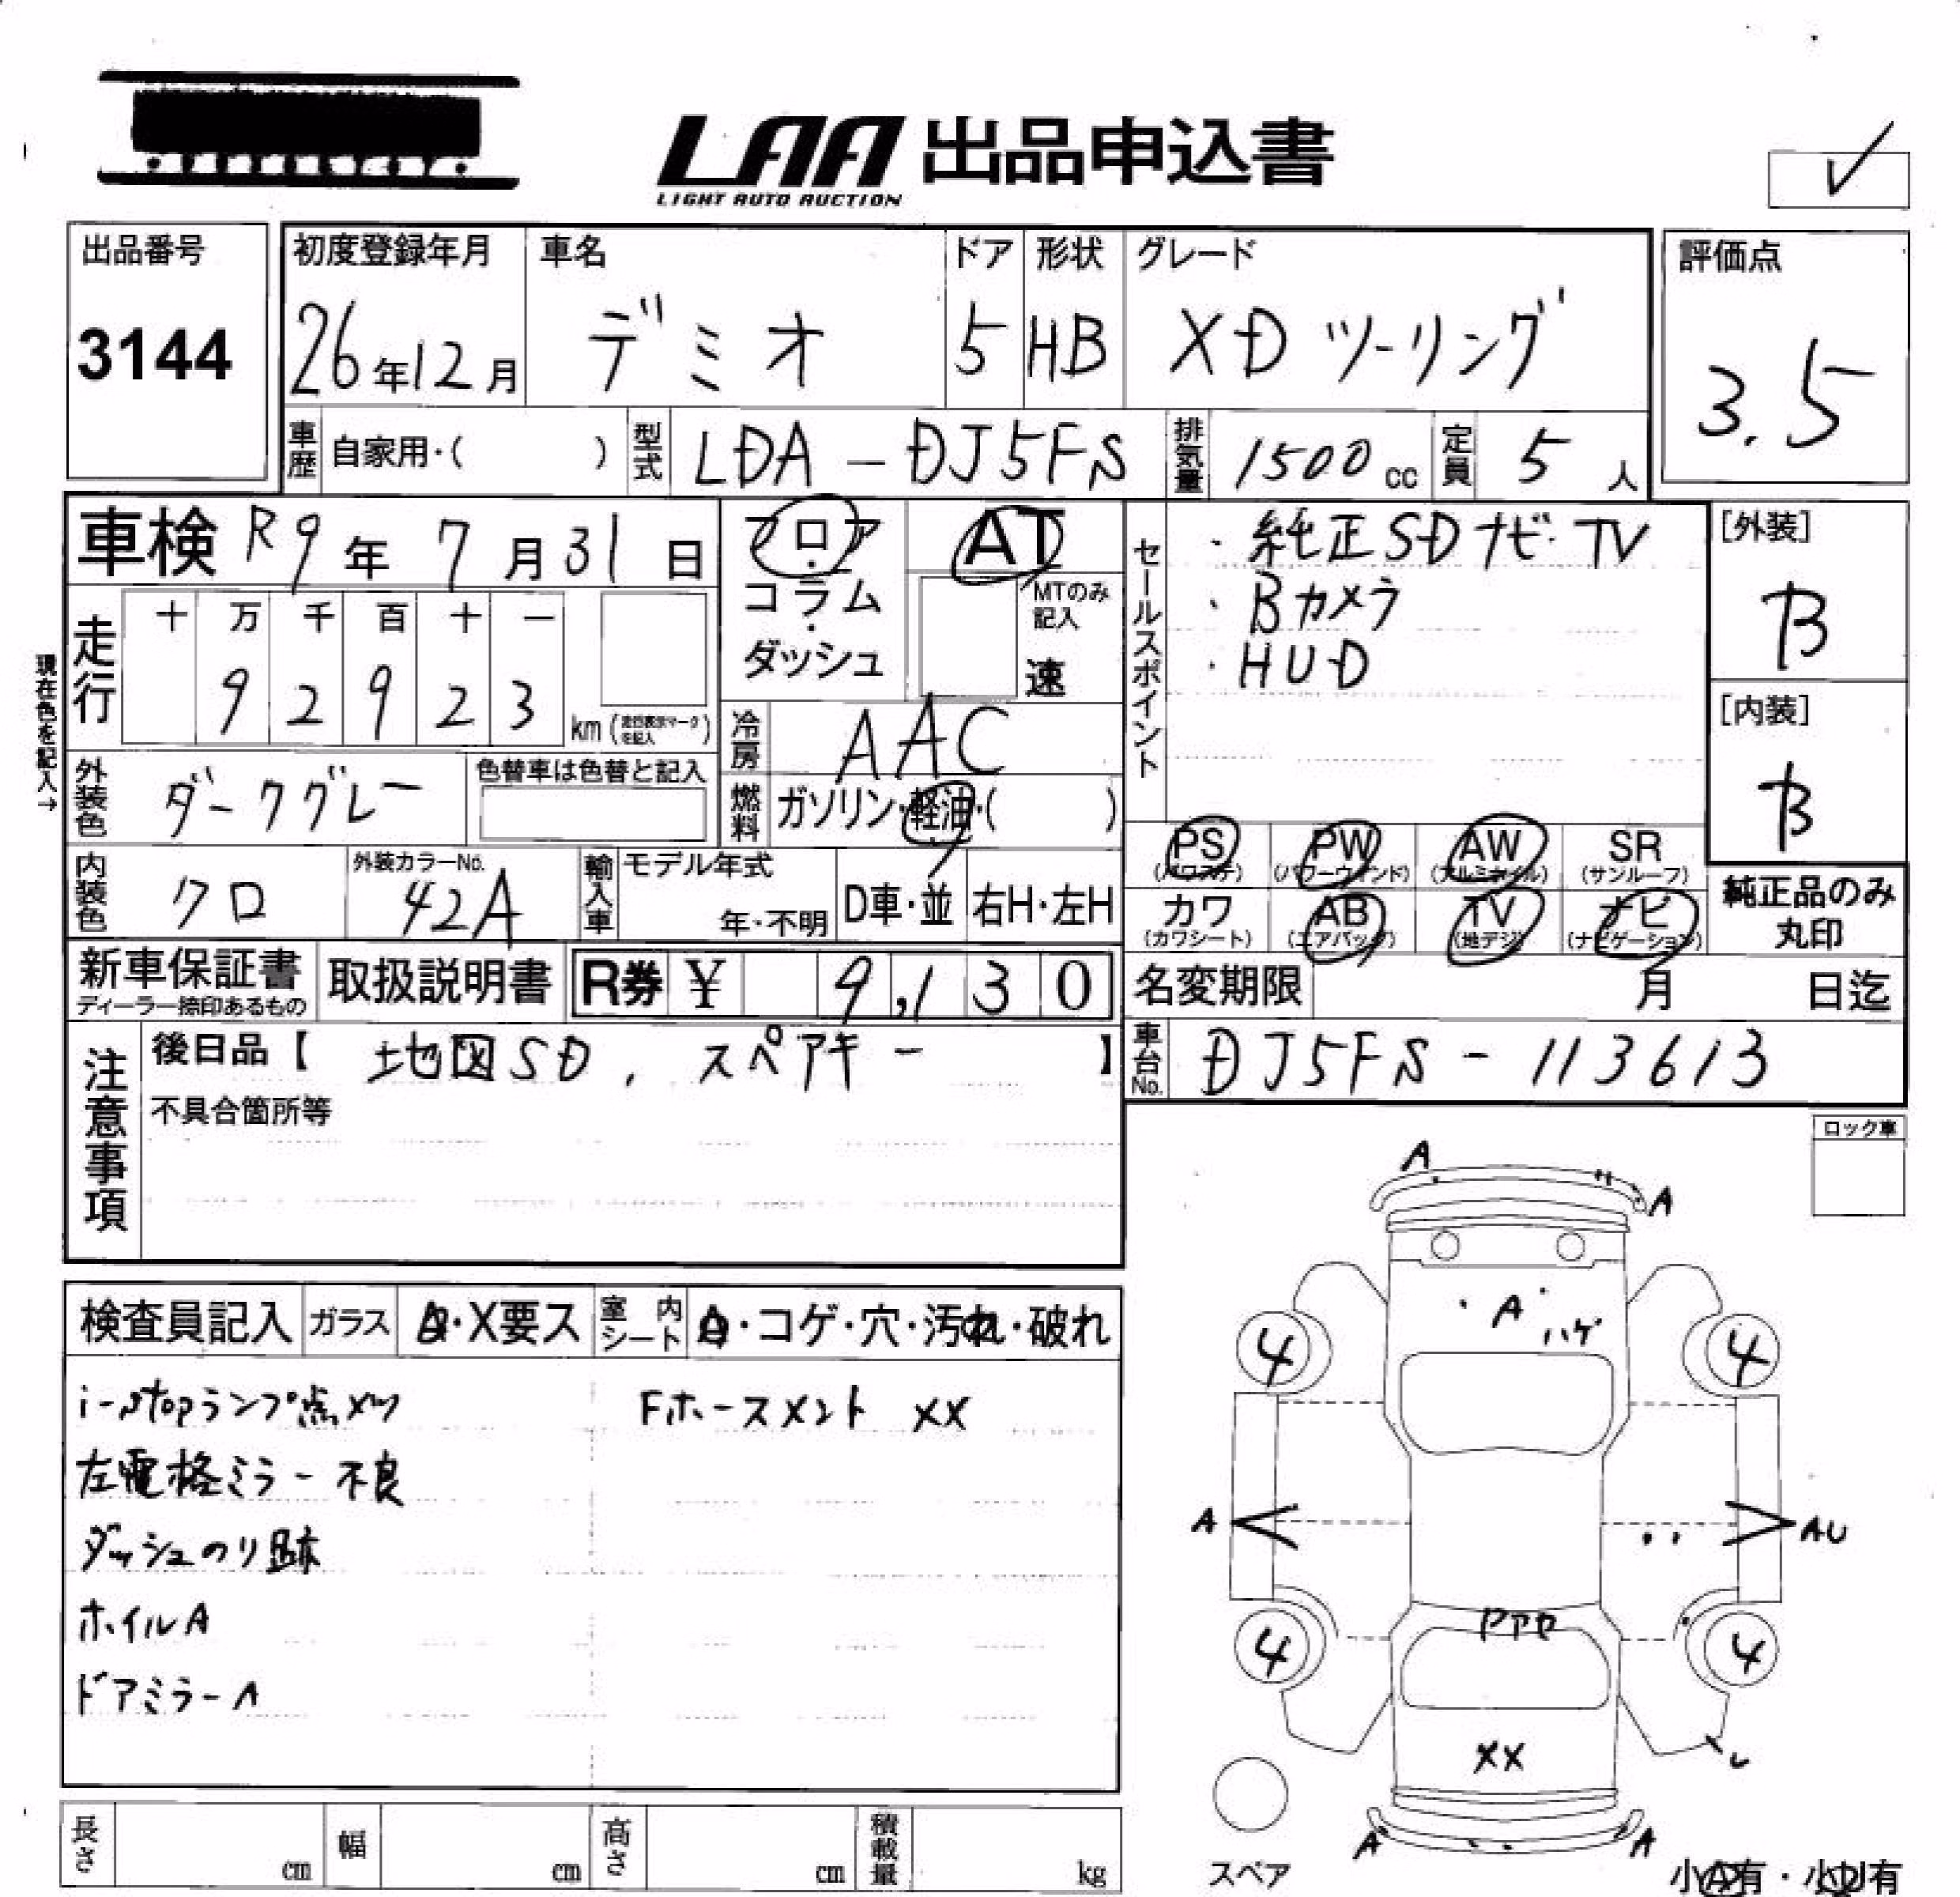 LAA 出品申込書
LIGHT AUTO AUCTION
出品番号
3144
初度登録年月
26年12月
車名
デミオ
ドア
5
形状
HB
グレード
XD ツーリング
評価点
3.5
車歴 自家用・( )
型式 LDA-DJ5FS
排気量 1500cc
定員 5人
車検 R9年7月31日
フロア・コラム・ダッシュ
AT
MTのみ記入
速
セールスポイント
・純正SDナビ TV
・Bカメラ
・HUD
[外装]
B
[内装]
B
現在色を記入→
走行
十 万 千 百 十 一
9 2 9 2 3
km (走行表示マークを記入)
冷房 AAC
燃料 ガソリン・軽油・( )
外装色 ダークグレー
色替車は色替と記入
内装色 クロ
外装カラーNo.
42A
輸入車
モデル年式
年・不明
D車・並
右H・左H
PS (パワステ)
PW (パワーウィンド)
AW (アルミホイル)
SR (サンルーフ)
カワ (カワシート)
AB (エアバッグ)
TV (地デジ)
ナビ (ナビゲーション)
純正品のみ丸印
新車保証書
ディーラー捺印あるもの
取扱説明書
R券 ¥ 9,130
名変期限 月 日迄
注意事項
後日品【 地図SD, スペアキー 】
不具合箇所等
車台No. DJ5FS-113613
ロック車
検査員記入
ガラス
A・X要ス
室内シート
・コゲ・穴・汚れ・破れ
i-stopランプ点メツ
Fホースメント XX
左電格ミラー不良
ダッシュのり跡
ホイルA
ドアミラーA
A
A
A
ハゲ
4
4
A
AU
4
4
XX
A
A
スペア
小A有・小U有
長さ cm
幅 cm
高さ cm
積載量 kg